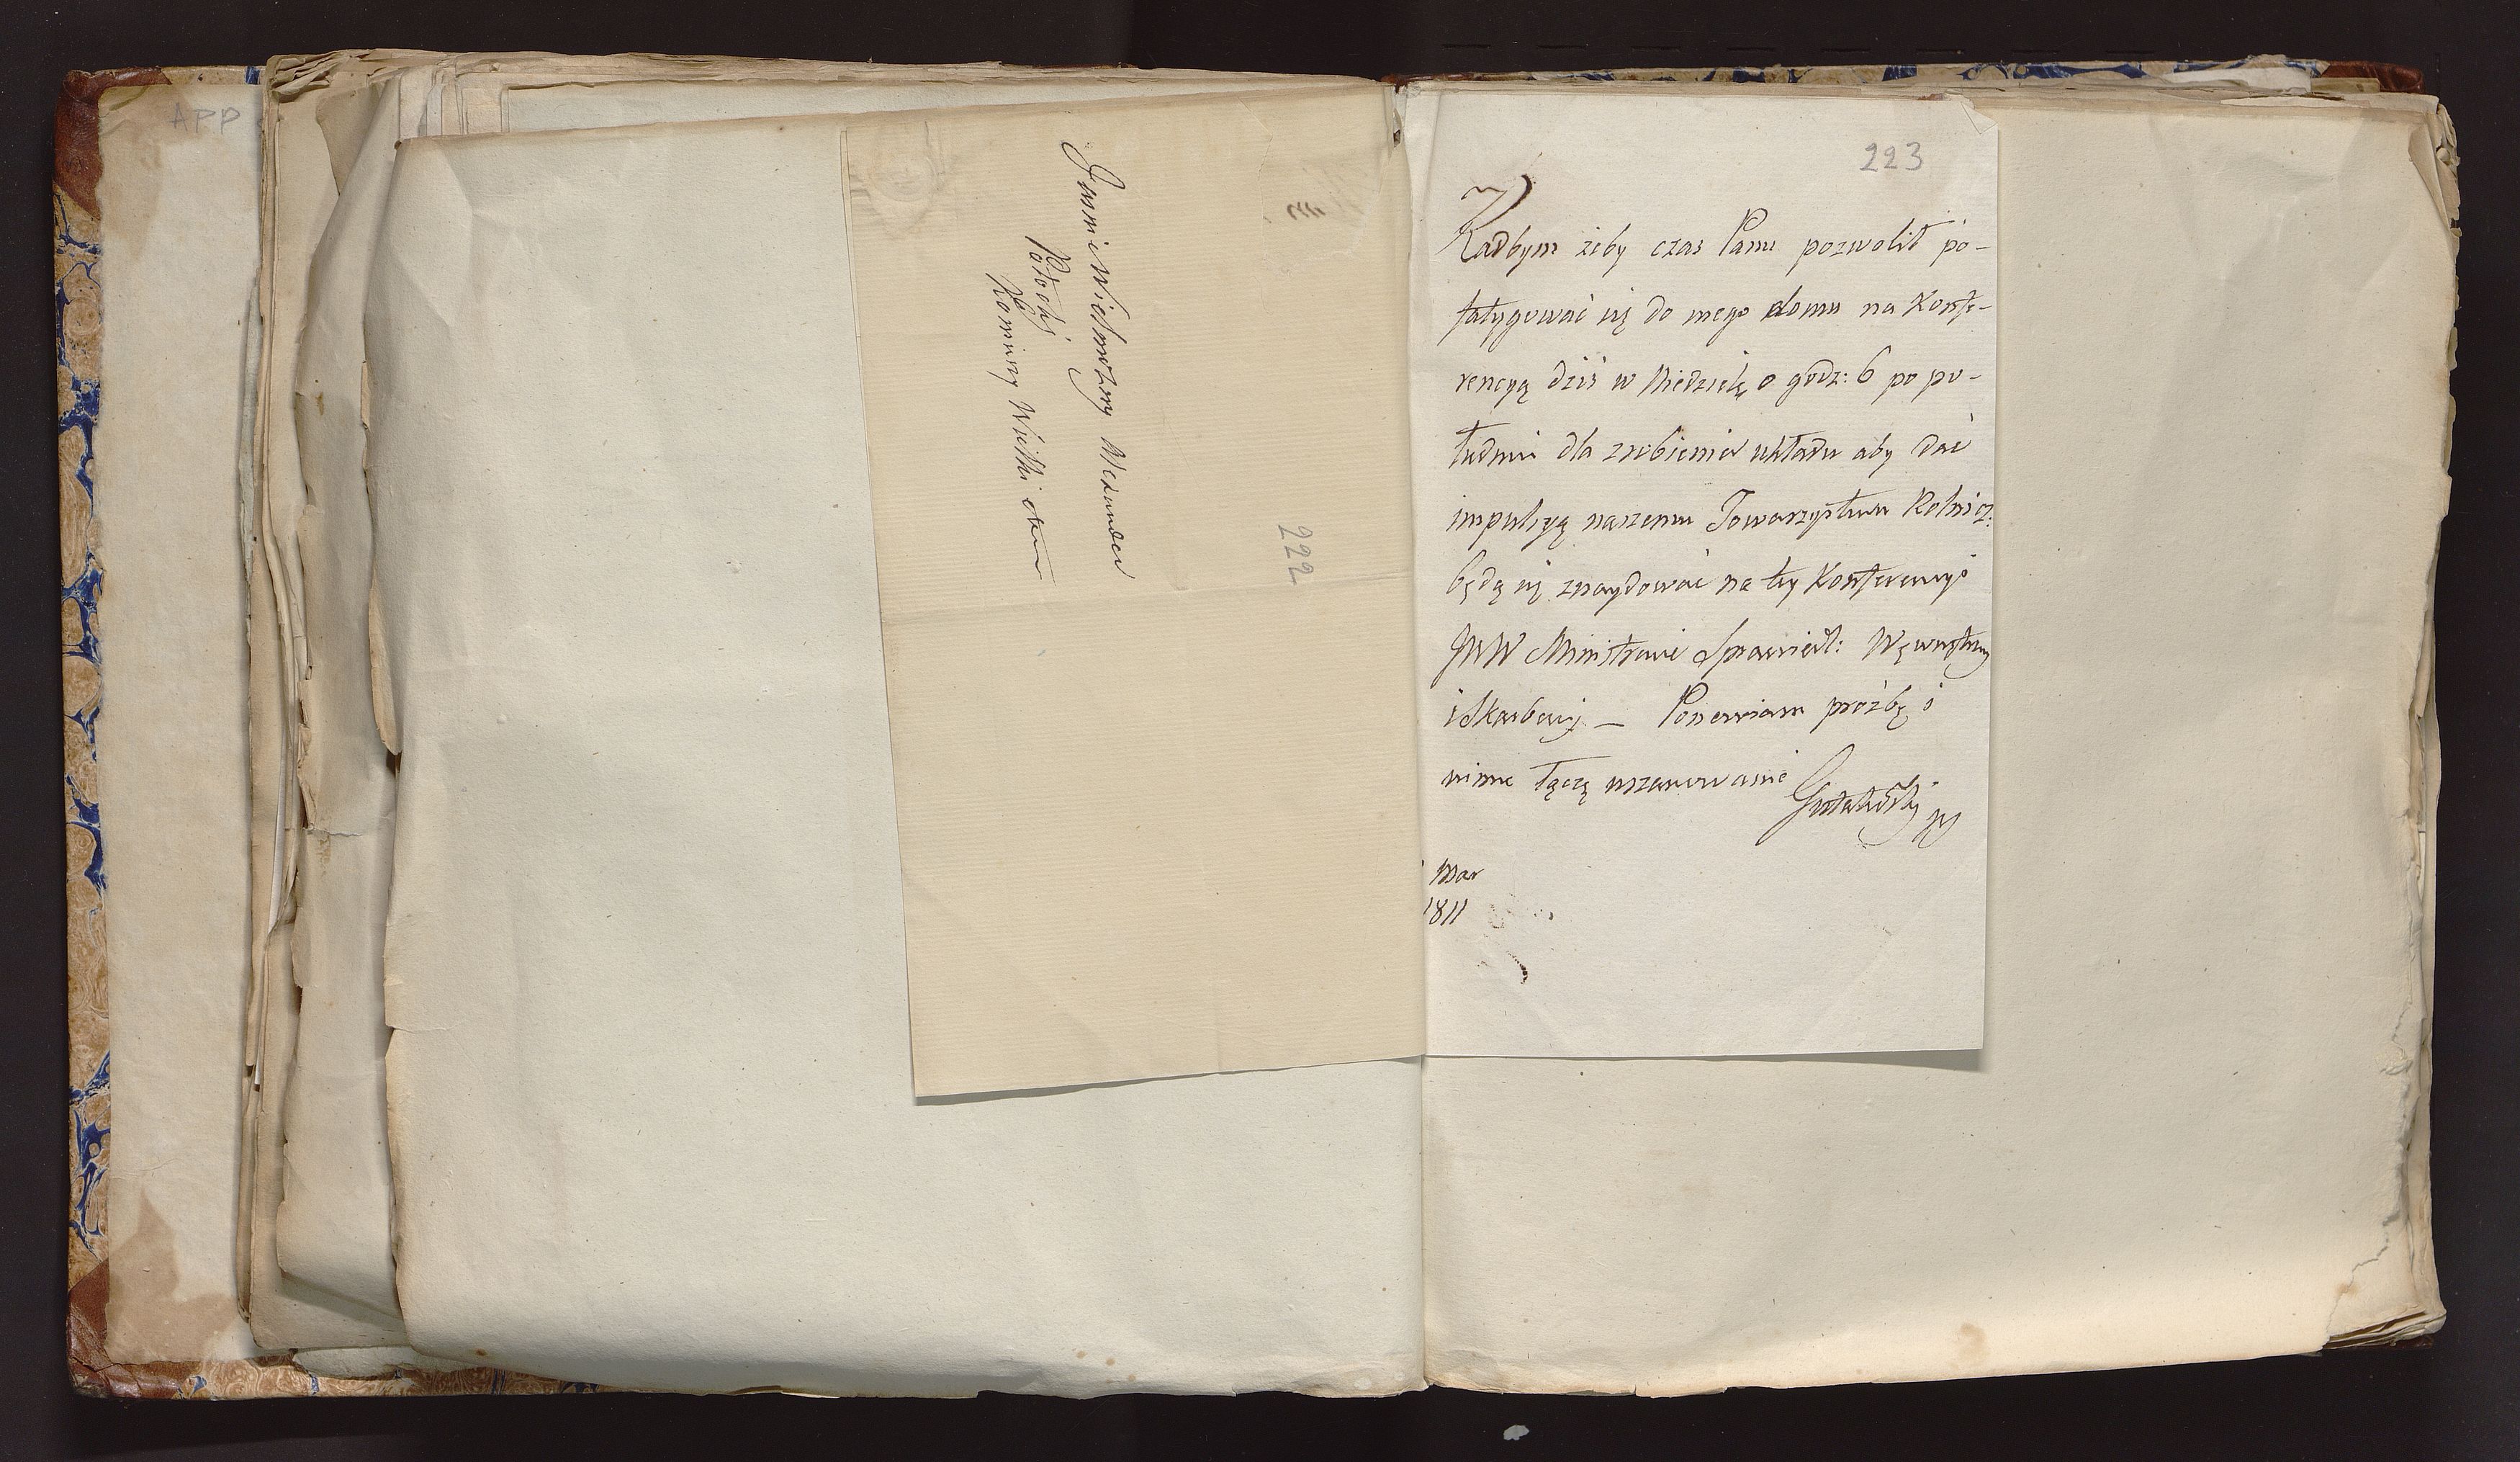 APP
222
Jasnie Wielmożny Alexander
Potocki
Koniuszy Wielki
223
Radbym żeby czas Panu pozwolił po-
fatygować się do mego domu na Konfe-
rencyą dziś w Niedzielę o godz: 6 po po-
łudniu dla zrobienia układu aby dać
impulsyą naszemu Towarzystwu Rolnicz:
będą się znaydować na tey Konferencyi
JWW Ministrowie Sprawiedl: Wewnętrzny
i Skarbowy — Ponawiam prózbę i
winne łączę uszanowanie
Gutakowski
Mar
1811